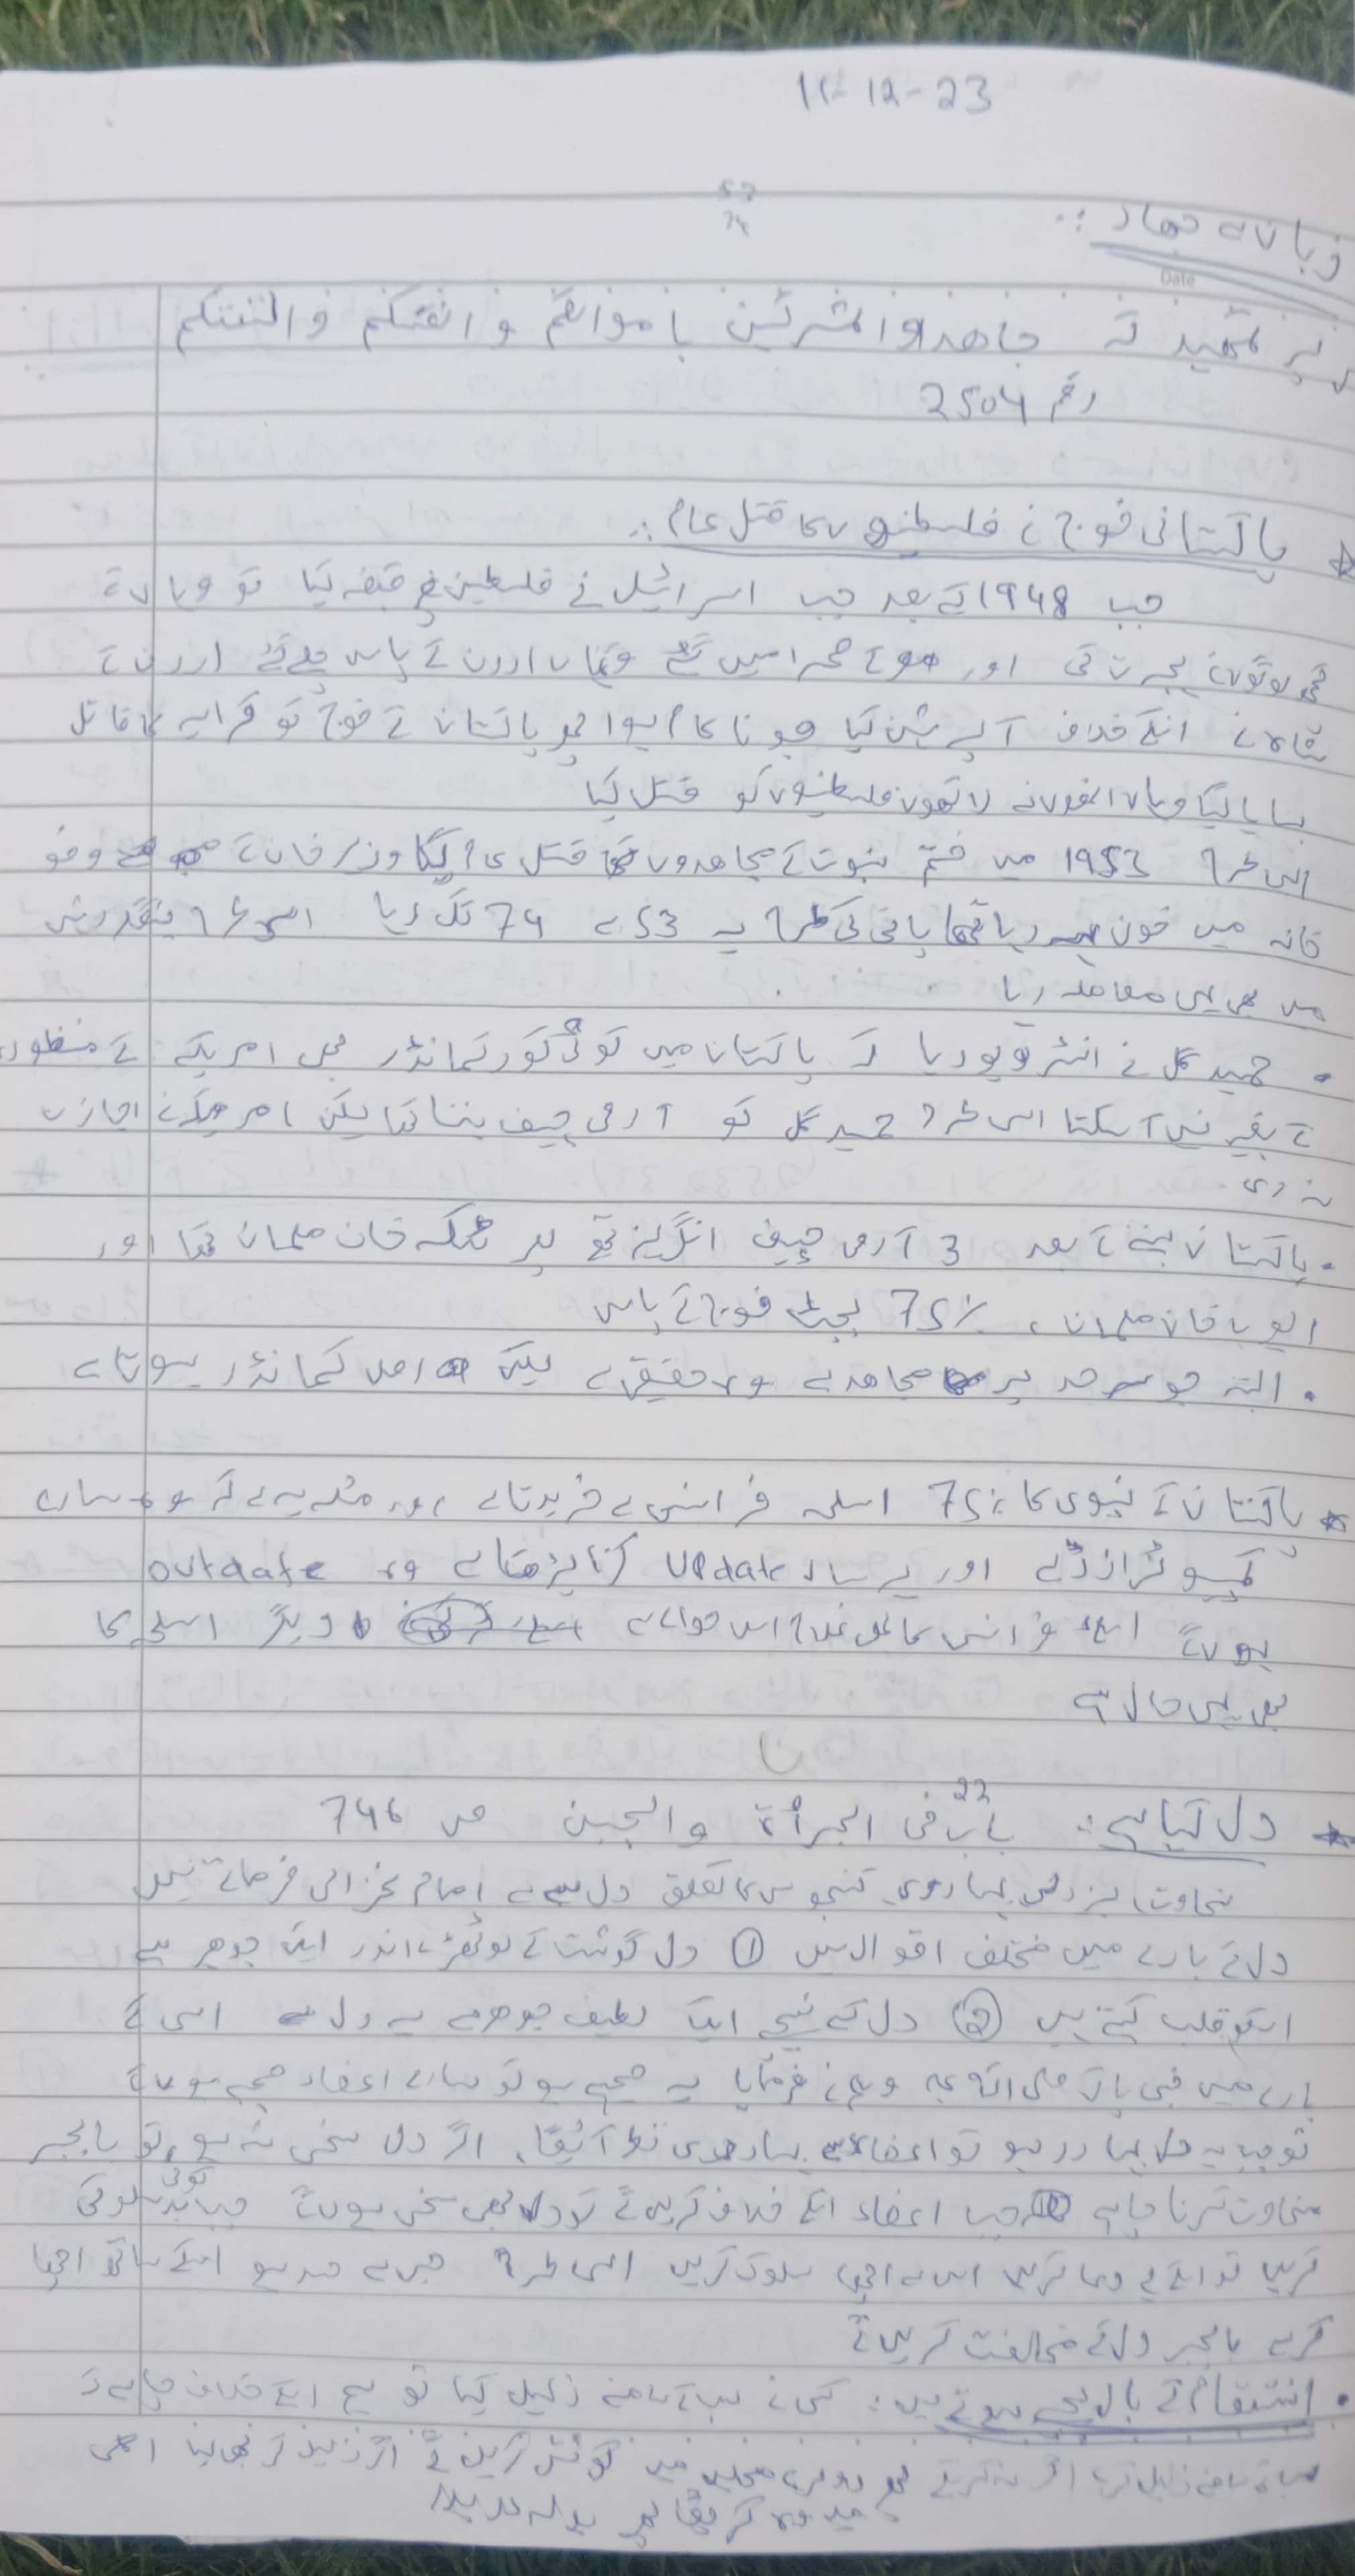 11-12-23
53
74
زبان سے جہاد :.
Date
جاھدوا المشرکین باموالکم و انفسکم والسنتکم
رقم 2504
پاکستانی فوج نے فلسطینیوں کا قتل عام :.
جب 1948 کے بعد جب اسرائیل نے فلسطین پر قبضہ کیا تو وہاں کے
کچھ لوگوں نے ہجرت کی اور صحرا میں گئے وہاں اردن کے پاس چلے گئے اردن کے
شاہ نے انکے خلاف آپریشن کیا جو ناکام ہوا پھر پاکستان کے فوج کو کرایہ کا قاتل
بنایا گیا وہاں انھوں نے لاکھوں فلسطینیوں کو قتل کیا
اس طرح 1953 میں ختم نبوت کے مجاھدوں کا قتل عام کیا گیا وزیر خان کے وضو
خانہ میں خون بہہ رہا تھا پانی کی طرح یہ 53 سے 74 تک رہا اس طرح بنگلہ دیش
میں بھی یہی معاملہ رہا
. حمید گل نے انٹرویو دیا کہ پاکستان میں کوئی کور کمانڈر بھی امریکہ کے منظوری
کے بغیر نہیں آسکتا اس طرح حمید گل کو آرمی چیف بننا تھا لیکن امریکہ نے اجازت
نہ دی
. پاکستان بننے کے بعد 3 آرمی چیف انگریز تھے پھر ٹکہ خان مسلمان تھا اور
ایوب خان مسلمان ، 75% بجٹ فوج کے پاس
. البتہ جو سرحد پر مجاھد ہے وہ حقیقی ہے لیکن اصل کمانڈر ہوتا ہے
* پاکستان کے نیوی کا 75% اسلحہ فرانس سے خریدتا ہے اور مسئلہ یہ ہے کہ وہ سارے
کمپیوٹرائزڈ ہے اور ہر سال update کرنا پڑھتا ہے ورنہ outdate
ہوں گے اسلئے فرانس کا بھی غلام اس حوالے سے دیگر اسلحے کا
بھی یہی حال ہے
* دل کیا ہے :. باب 22 فی الجرأۃ والجبن ص 746
سخاوت، بزدلی بہادری کنجوسی کا تعلق دل سے ہے امام غزالی فرماتے ہیں
دل کے بارے میں مختلف اقوال ہیں ① دل گوشت کے لوتھڑے اندر ایک جوھر ہے
اسکو قلب کہتے ہیں ② دل کے نیچے ایک لطیف جوھر ہے یہ دل ہے اسی کے
بارے میں نبی پاک صلی اللہ علیہ وسلم نے فرمایا یہ صحیح ہو تو سارے اعضاء صحیح ہوں گے
تو جب یہ دل بہادر ہو تو اعضاء سے بہادری نظر آئیگا، اگر دل سخی نہ ہو تو بالجبر
سخاوت کرنا چاہیے جب اعضاء اسکے خلاف کریں گے تو دل بھی سخی ہوں گے جب کوئی بدسلوکی
کریں تو اسکے لیے دعا کریں اس سے اچھا سلوک کریں اس طرح جس سے حسد ہو اسکے ساتھ اچھا
کرے بالجبر دل کے مخالفت کریں گے
. انتقام کے بال بچے ہوتے ہیں : کسی نے سب کے سامنے ذلیل کیا تو ہم اسکے خلاف چاہے کہ
سب کے سامنے ذلیل کرے اگر نہ کرسکے پھر دوسری مجلس میں کوشش کریں گے اگر ذلیل کر بھی لیا